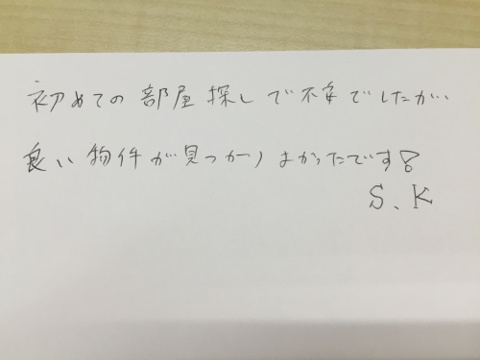 初めての部屋探しで不安でしたが…
良い物件が見つかりよかったです!
S、K